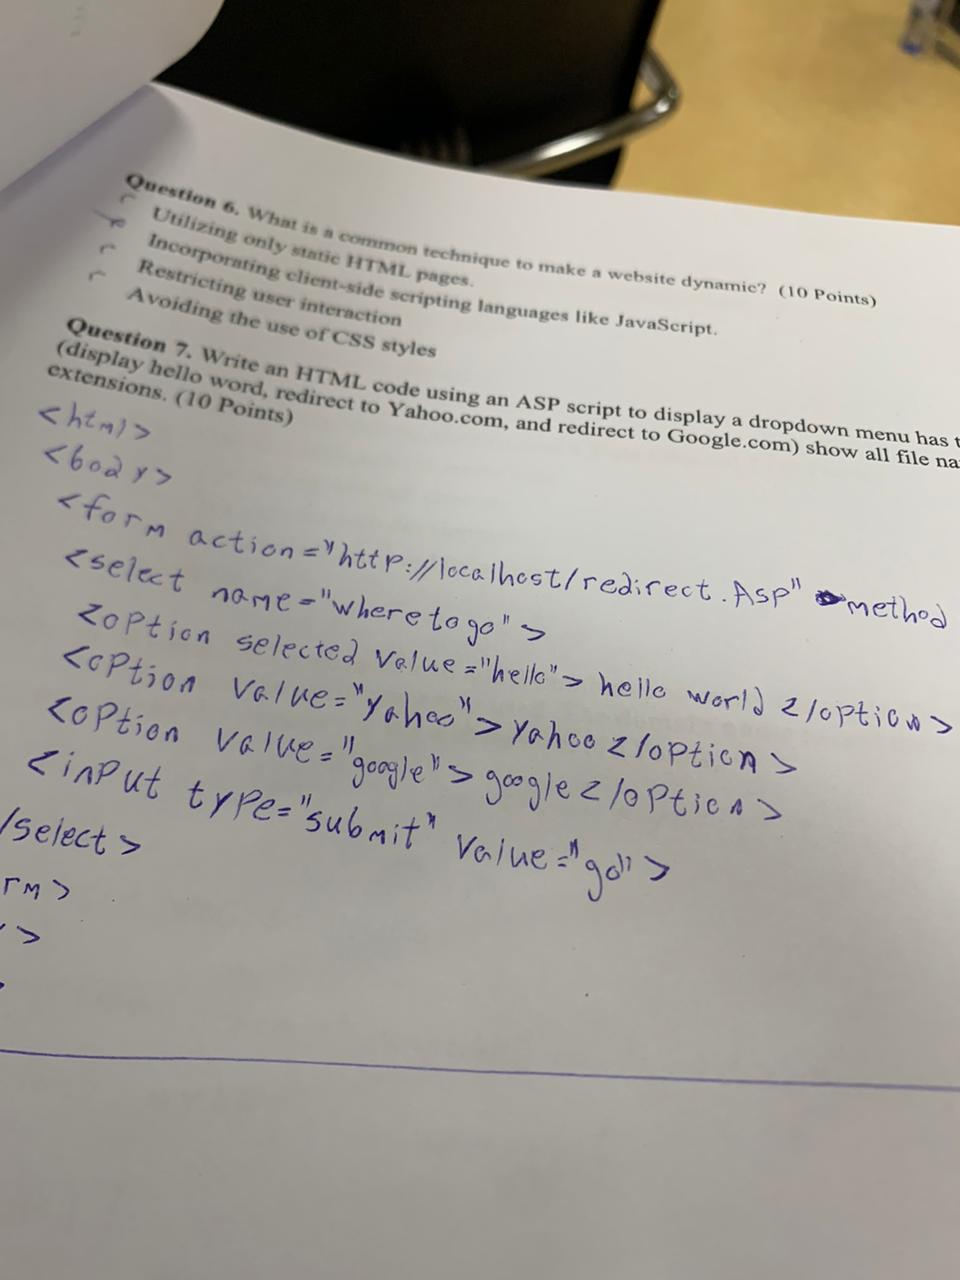 Question 6. What is a common technique to make a website dynamic? (10 Points)
Utilizing only static HTML pages.
Incorporating client-side scripting languages like JavaScript.
Restricting user interaction
Avoiding the use of CSS styles
Question 7. Write an HTML code using an ASP script to display a dropdown menu has
(display hello word, redirect to Yahoo.com, and redirect to Google.com) show all file
extensions. (10 Points)
<html>
<body>
<form action="http://localhost/redirect.Asp" method
<select name="where to go">
<option selected value="hello"> hello world </option>
<option value="yahoo">yahoo </option>
<option value="google"> google </option>
<input type="submit" value="go">
/select>
rm>
>